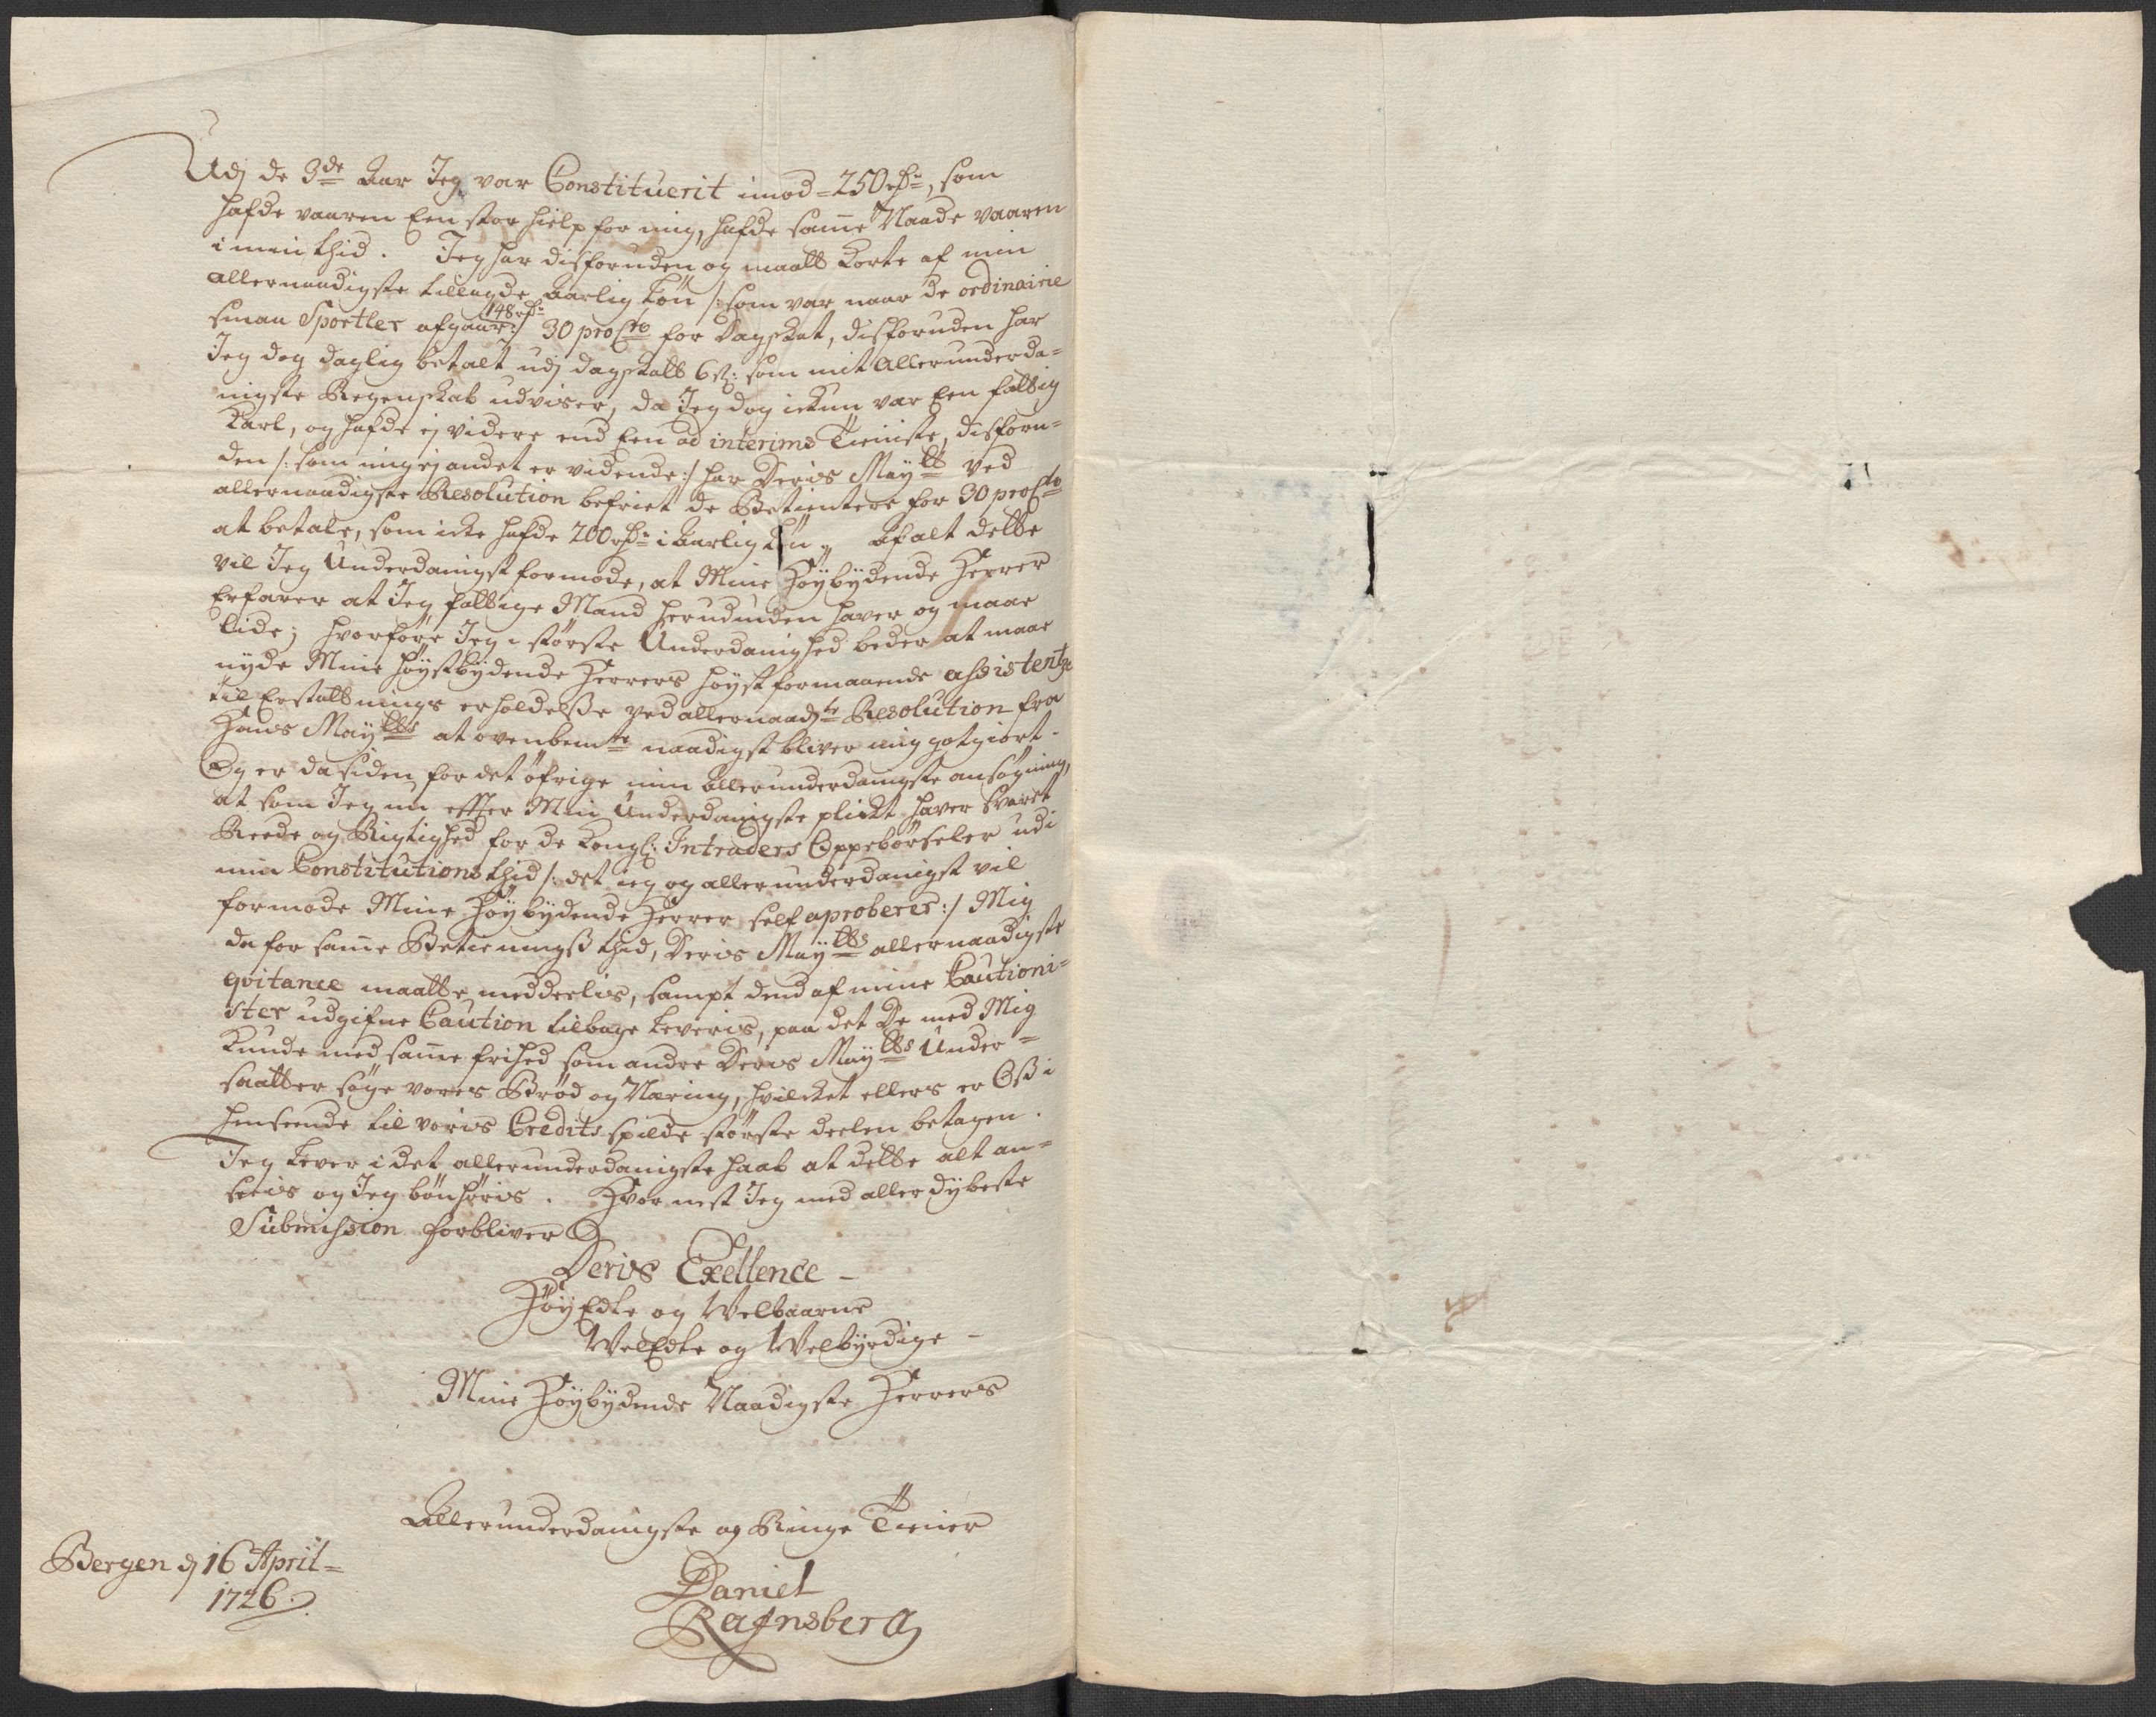 Udj de 3de Aar Jeg var Constituerit imod = 250 rdr, som
hafde vaaren Een stor hielp for mig, hafde same Naade vaaren
i min thid. Jeg har disforuden og maatt korte af min
allernaadigste tillagde Aarlig Løn /: som var naar de ordinairie
smaa Sportler afgaar 148 rdr :/ 30 pro Cto for dagskat, disforuden har
Jeg dog daglig betalt udj dagskatt 6 s: som mit allerunderda-
nigste Regenskab udviser, da Jeg dog ickun var Een fattig
Karl, og hafde ej videre end Een ad interims Tieniste, disforu-
den /: som mig ej andet er vidende :/ har Deris Maytt ved
allernaadigste Resolution befriet de Betientere for 30 pro Cto
at betale, som icke hafde 200 rdr i Aarlig Løn, Af alt dette
vil Jeg Underdanigst formode, at Mine Høybydende Herrer
Erfarer at Jeg fattige Mand herudinden haver og maae
lide; hvorføre Jeg i største Underdanighed beder at maae
nyde Mine Høystbydende Herrers høyst formaaende assistentze
til Erstattnings erholdelsse ved allernaadste Resolution fra
Hans Maytts at ovenbemte naadigst bliver mig gotgiort -
Og er da siden for det øfrige min Allerunderdanigste ansøgning,
at som Jeg nu effter Min Underdanigste plickt haver svaret
Reede og Rigtighed for de Kongl: Intraders Oppebørseler udi
min Constitutions thid /: det ieg og allerunderdanigst vil
formode Mine Høybydende Herrer self aproberer :/ Mig
da for same Betienings thid, Deris Maytts allernaadigste
qvitance maatte meddeelis, sampt dend af mine Cautioni-
ster udgifne Caution tilbage leveris, paa det De med Mig
Kunde med same frihed som andre Deris Maytts Under-
saatter søge vores Brød og Næring, hvilcket ellers er Oss i
henseende til voris Credits spilde største deelen betagen.
Jeg lever i det allerunderdanigste haab at dette alt an-
seeis og Jeg bønhøris. Hvor nest Jeg med allerdybeste
Submission forbliver
Deris Exellence -
HøyEdle og Welbaarne
WelEdle og Welbyrdige -
Mine Høybydende Naadigste Herrers
Allerunderdanigste og Ringe Tiener
Daniel
Rafnsberg
Bergen d 16 April =
1726.